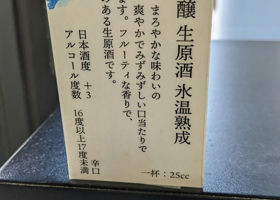 醸 生原酒 氷温熟成
まろやかな味わいの
爽やかでみずみずしい口当たりで
ます。フルーティな香りで、
のある生原酒です。
日本酒度 +3 辛口
アルコール度数 16度以上17度未満
一杯：25cc